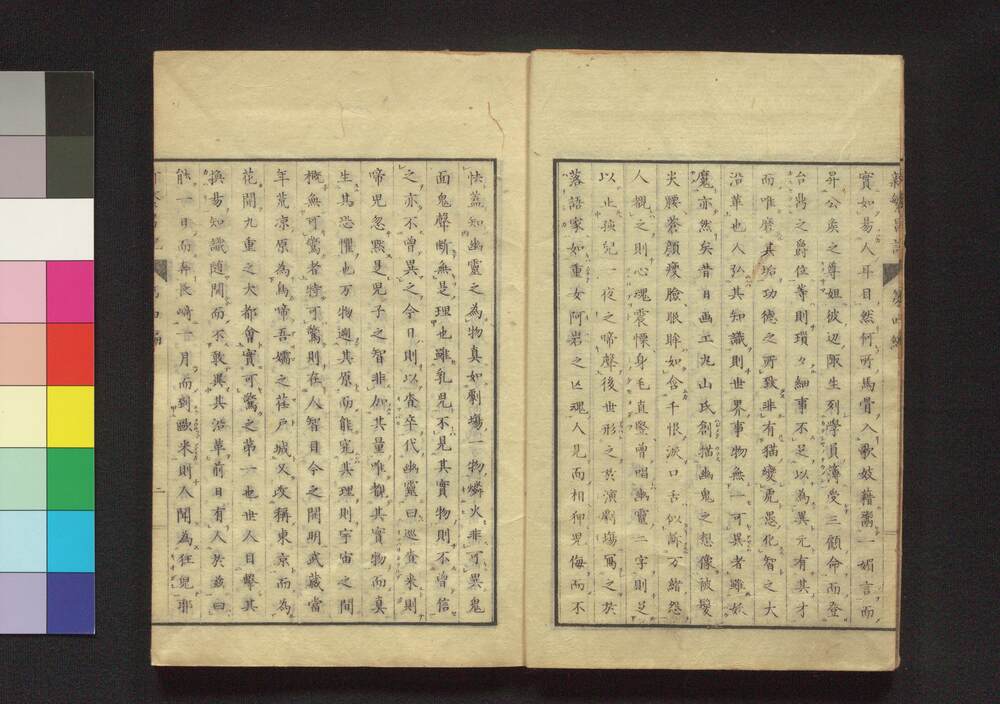 實如易人耳目然何啻馬骨入歌妓籍粥一媚言而
昇公矦之尊姐彼辺陬生列學員簿受三顧命而登
台鼎之爵位等則瑣々細事不足以為異元有其才
而唯磨其垢功徳之所致非有猫變虎愚化智之大
沿革也人弘其知識則世界事物無一可異者雖妖
魔亦然矣昔日画工丸山氏創描幽鬼之想像被髮
尖腰蒼顔瘦臉眼眸如含千恨涙口舌似訴万緒怨
人観之則心魂震慄身毛直竪曽唱幽靈二字則足
以止孩兒一夜之啼聲後世形之於演劇塲寫之於
落語家如重女阿岩之亡魂人見而相抑畏侮而不
怯蓋知幽靈之為物真如劇塲一物燐火非可異鬼
面鬼聲断無是理也雖乳兒不見其實物則不曽信
之亦不曽異之今日則以査卒代幽靈曰巡査来則
啼兒忽黙是兒子之智非加其量唯觀其實物而真
生其恐懼也万物遡其原而能究其理則宇宙之間
概無可驚者特可驚則在人智目今之開明武蔵當
年荒凉原為鳥啼吾嬬之荏戸城又改稱東京而為
花開九重之大都會實可驚之第一也世人目擊其
換易知識随開而不敢異其沿革前日有人於茲曰
能一日而奔長崎一月而到歐米則人聞為狂兒耶
二